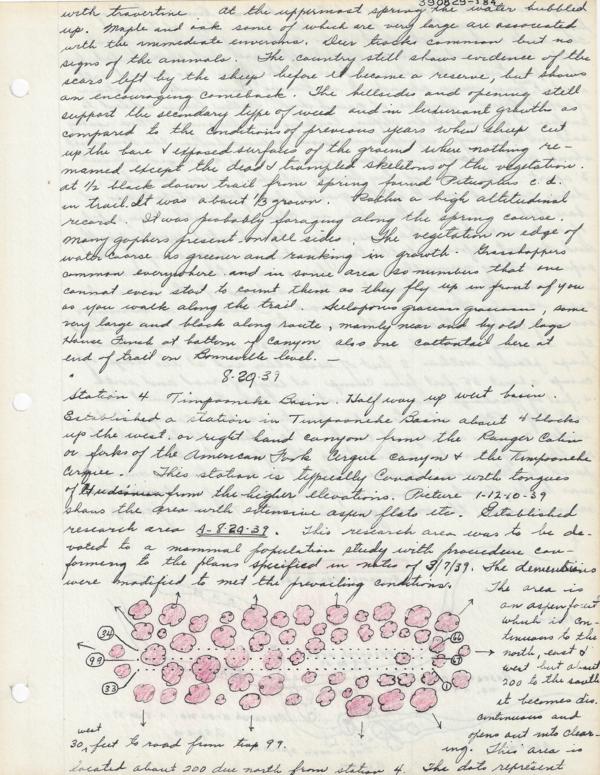 390829-184
with travertine. At the uppermost spring the water bubbled
up. Maple and oak some of which are very large are associated
with the immediate environs. Deer tracks common but no
signs of the animals. The country still shows evidence of the
scars left by the sheep before it became a reserve, but shows
an encouraging comeback. The hillsides and opening still
support the secondary type of weed and in luxuriant growths as
compared to the conditions of previous years when sheep cut
up the bare & exposed surfaces of the ground where nothing re-
mained except the dead & trampled skeletons of the vegetation.
at 1/2 block down trail from spring found Pituophis c. d.
in trail. It was about 1/3 grown. Rather a high altitudinal
record. It was probably foraging along the spring course.
Many gophers present on all sides. The vegetation on edge of
water coarse is greener and ranking in growth. Grasshoppers
common everywhere and in some area so numbers that one
cannot even start to count them as they fly up in front of you
as you walk along the trail. Sceloporus graciosus graciosus, some
very large and black along route, mainly near and by old logs
House Finch at bottom of canyon also one cottontail here at
end of trail on Bonneville level. —
8-29-39
Station 4 Timpooneke Basin. Half way up west basin.
Established a station in Timpooneke Basin about 4 blocks
up the west, or right hand canyon from the Ranger Cabin
or forks of the American Fork Cirque canyon & the Timpooneke
Cirque. This station is typically Canadian with tongues
of Hudsonian from the higher elevations. Picture 1-12-10-39
shows the area with extensive aspen flats etc. Established
research area A-8-29-39. This research area was to be de-
voted to a mammal population study with procedure con-
forming to the plans specified in notes of 3/7/39. The dementions
were modified to met the prevailing conditions.
The area is
an aspen forest
which is con-
tinuous to the
north, east &
west but about
200 to the south
it becomes dis.
continuous and
opens out into clear-
ing. This area is
34
66
99
67
33
1
west
30 feet to road from trap 99.
located about 200 due north from station 4. The dots represent